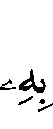 بِهِۦ